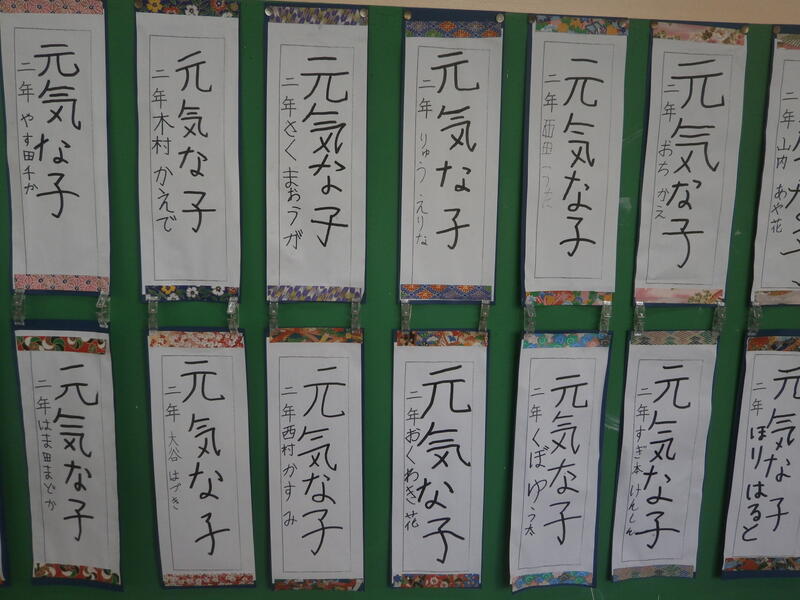 元気な子
二年 やす田千か
元気な子
二年 木村 かえで
元気な子
二年 さく まおうが
元気な子
二年 りゅう えりな
元気な子
二年 西田
元気な子
二年 おち かえ
元気な子
二年 山内 あや花
元気な子
二年 はま田まどか
元気な子
二年 大谷 はづき
元気な子
二年 西村 かすみ
元気な子
二年 おくわき 花
元気な子
二年 くぼ ゆう太
元気な子
二年 すぎ本 けんしん
元気な子
二年 ほり はると